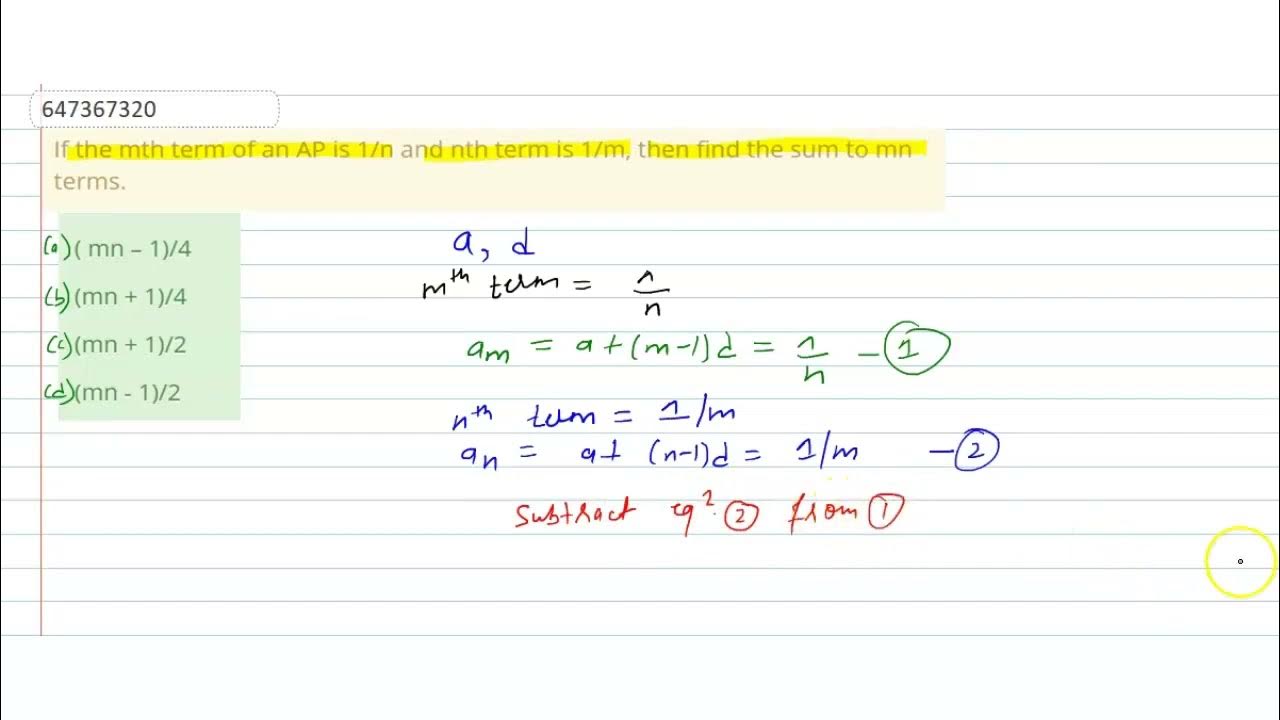 647367320
If the mth term of an AP is 1/n and nth term is 1/m, then find the sum to mn
terms.
(a) ( mn – 1)/4
(b) (mn + 1)/4
(c) (mn + 1)/2
(d) (mn - 1)/2
a, d
mᵗʰ term = 1/n
aₘ = a + (m-1)d = 1/n - ①
nᵗʰ term = 1/m
aₙ = a + (n-1)d = 1/m - ②
Subtract eqⁿ. ② from ①